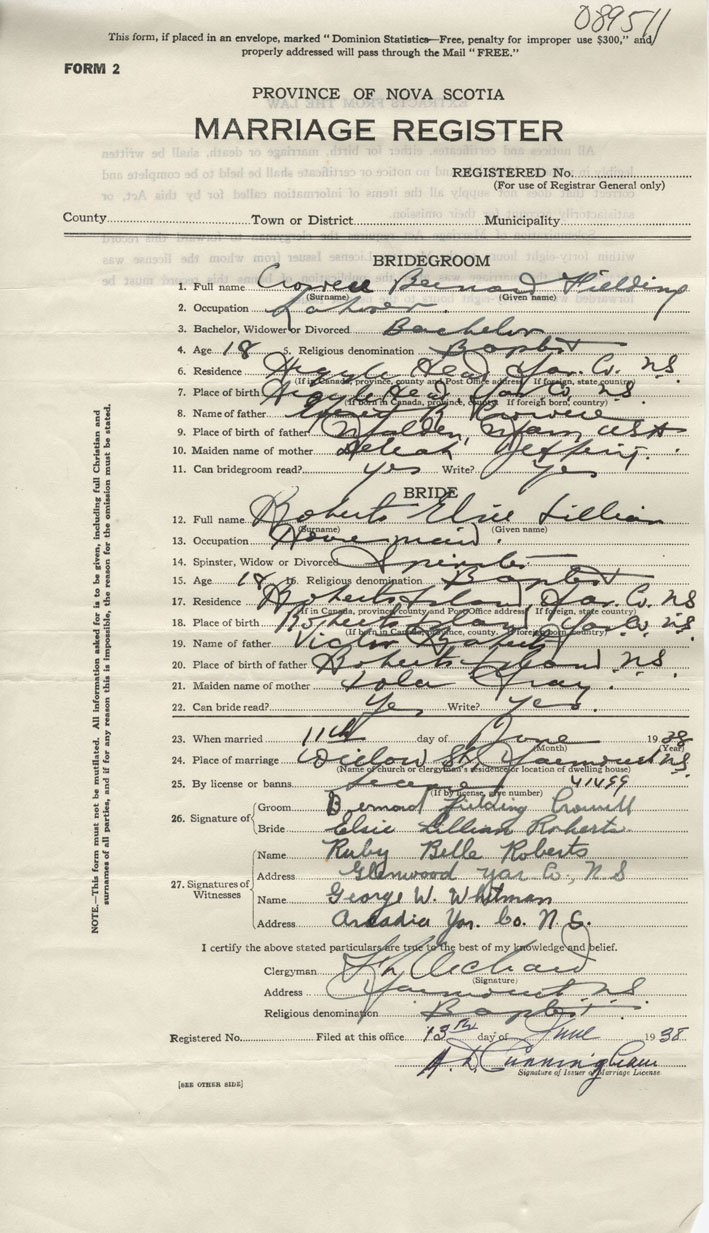 089511
This form, if placed in an envelope, marked "Dominion Statistics—Free, penalty for improper use $300," and
properly addressed will pass through the Mail "FREE."
FORM 2
PROVINCE OF NOVA SCOTIA
MARRIAGE REGISTER
REGISTERED No.
(For use of Registrar General only)
County Town or District Municipality
BRIDEGROOM
1. Full name Crowell Bernard Fielding
(Surname) (Given name)
2. Occupation Laborer
3. Bachelor, Widower or Divorced Bachelor
4. Age 18 5. Religious denomination Baptist
6. Residence Argyle Head Yar. Co. N.S.
(If in Canada, province, county and Post Office address. If foreign, state country)
7. Place of birth Argyle Head Yar. Co. N.S.
(If born in Canada, province, county. If foreign born, country)
8. Name of father B. Crowell
9. Place of birth of father Malden, Mass USA
10. Maiden name of mother
11. Can bridegroom read? yes Write? yes
BRIDE
12. Full name Roberts Elsie Lillian
(Surname) (Given name)
13. Occupation Housemaid
14. Spinster, Widow or Divorced Spinster
15. Age 18 16. Religious denomination Baptist
17. Residence Roberts Island Yar. Co. N.S.
(If in Canada, province, county and Post Office address. If foreign, state country)
18. Place of birth Roberts Island Yar Co N.S.
(If born in Canada, province, county. If foreign born, country)
19. Name of father Victor Roberts
20. Place of birth of father Roberts Island N.S.
21. Maiden name of mother Lola Gray
22. Can bride read? Yes Write? Yes.
23. When married 11th day of June 1938
(Month) (Year)
24. Place of marriage Willow St. Yarmouth N.S.
(Name of church or clergyman's residence or location of dwelling house)
25. By license or banns License 41499
(If by license, give number)
26. Signature of
Groom Bernard Fielding Crowell
Bride Elsie Lillian Roberts
27. Signatures of Witnesses
Name Ruby Belle Roberts
Address Glenwood Yar Co., N.S
Name George W. Whitman
Address Arcadia Yar. Co. N.S.
I certify the above stated particulars are true to the best of my knowledge and belief.
Clergyman
(Signature)
Address Yarmouth N.S.
Religious denomination Baptist
Registered No. Filed at this office 13th day of June 1938
A. D. Cunningham
Signature of Issuer of Marriage License
[SEE OTHER SIDE]
NOTE.—This form must not be mutilated. All information asked for is to be given, including full Christian and
surnames of all parties, and if for any reason this is impossible, the reason for the omission must be stated.